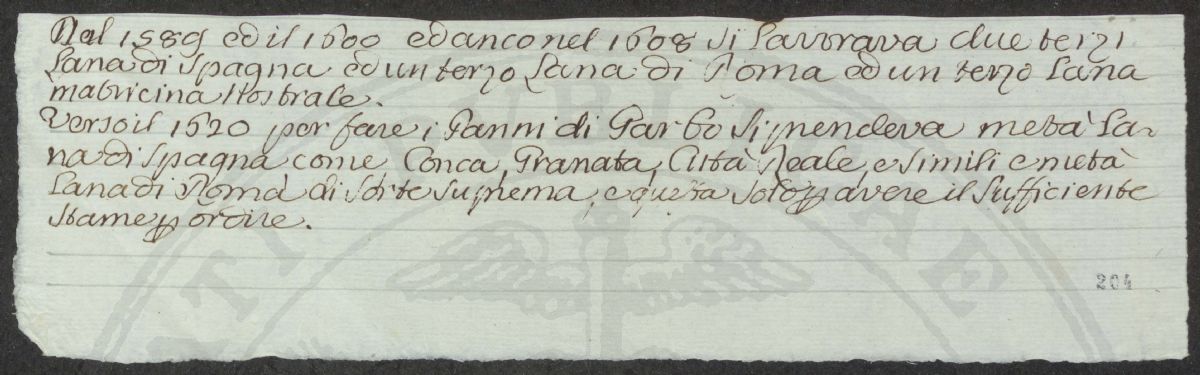 Nel 1589 ed il 1600 ed anco nel 1608 si lavorava due terzi
Lana di Spagna ed un terzo Lana di Roma ed un terzo Lana
matricina Nostrale.
Verso il 1620 per fare i Panni di Garbo si prendeva metà La-
na di Spagna come Conca, Granata, Città Reale e simili e metà
Lana di Roma di Sorte Suprema, e questa solo p avere il Sufficiente
stame p ordire.
204